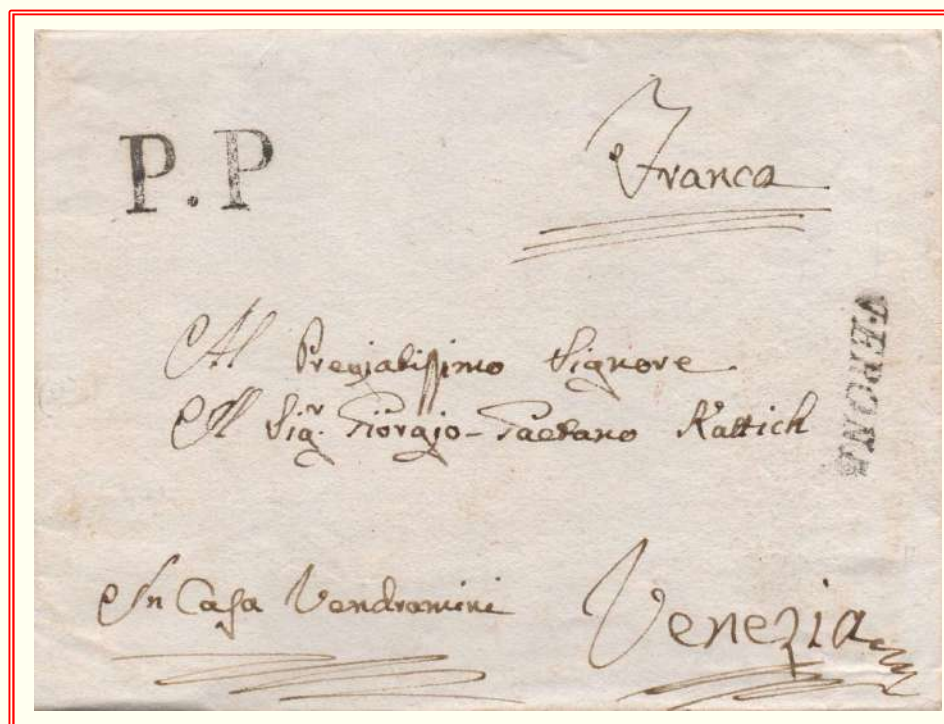 P.P
Franca
VERONA
Al Pregiatissimo Signore
Il Sig.r Giorgio-Gaetano Rattich
In Casa Vendramini
Venezia